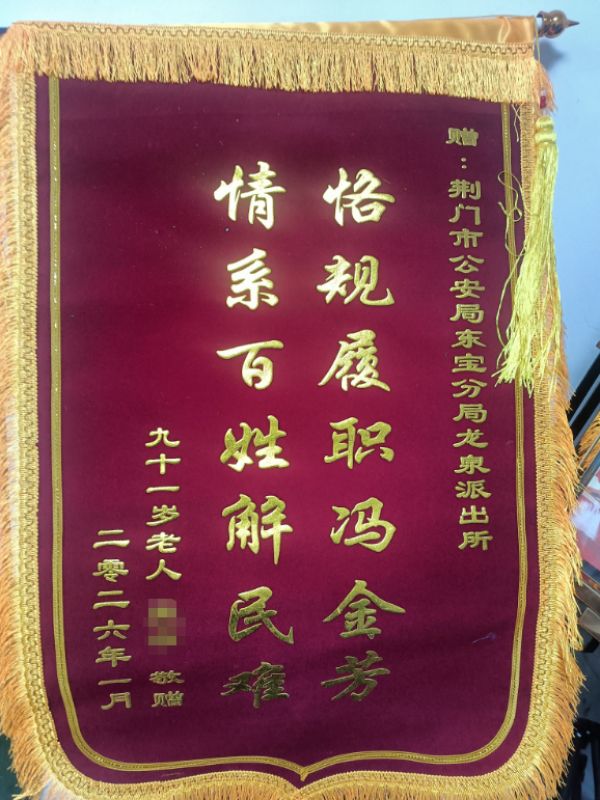 赠：荆门市公安局东宝分局龙泉派出所
恪规履职冯金芳
情系百姓解民难
九十一岁老人 敬赠
二零二六年一月